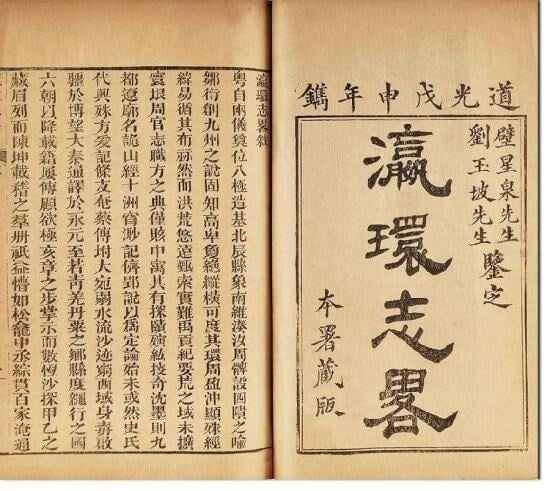 道光戊申年鐫
壁星泉先生
劉玉坡先生
鑒定
瀛環志畧
本署藏版
瀛環志畧敘
粵自兩儀奠位八極造基北辰縣象南維湊沒周髀設四隤之喻
鄒衍創九州之說固知高卑敻絕縱橫可度其環周盈沖顯殊經
緯易循其布赫然而洪荒悠遠甄索實難禹貢紀要荒之域未擴
寰垠周官志職方之典僅賅中寓其有探賾紘技奇沈墨則九
都遼廓名詭山經十洲渺記儕郢說以為定論始未或然史氏
代興殊方爰記條支奄蔡傳坿大宛弱水流沙迹窮西域身毒啟
疆於博望大秦通譯於永元至若青羌丹粟之鄉縣度繩行之國
六朝以降載籍屢傳顧欲極亥章之步掌示而數恆沙探甲乙之
藏眉列而陳坤載稽之羣冊祇益懵如松龕中丞綜貫百家淹通